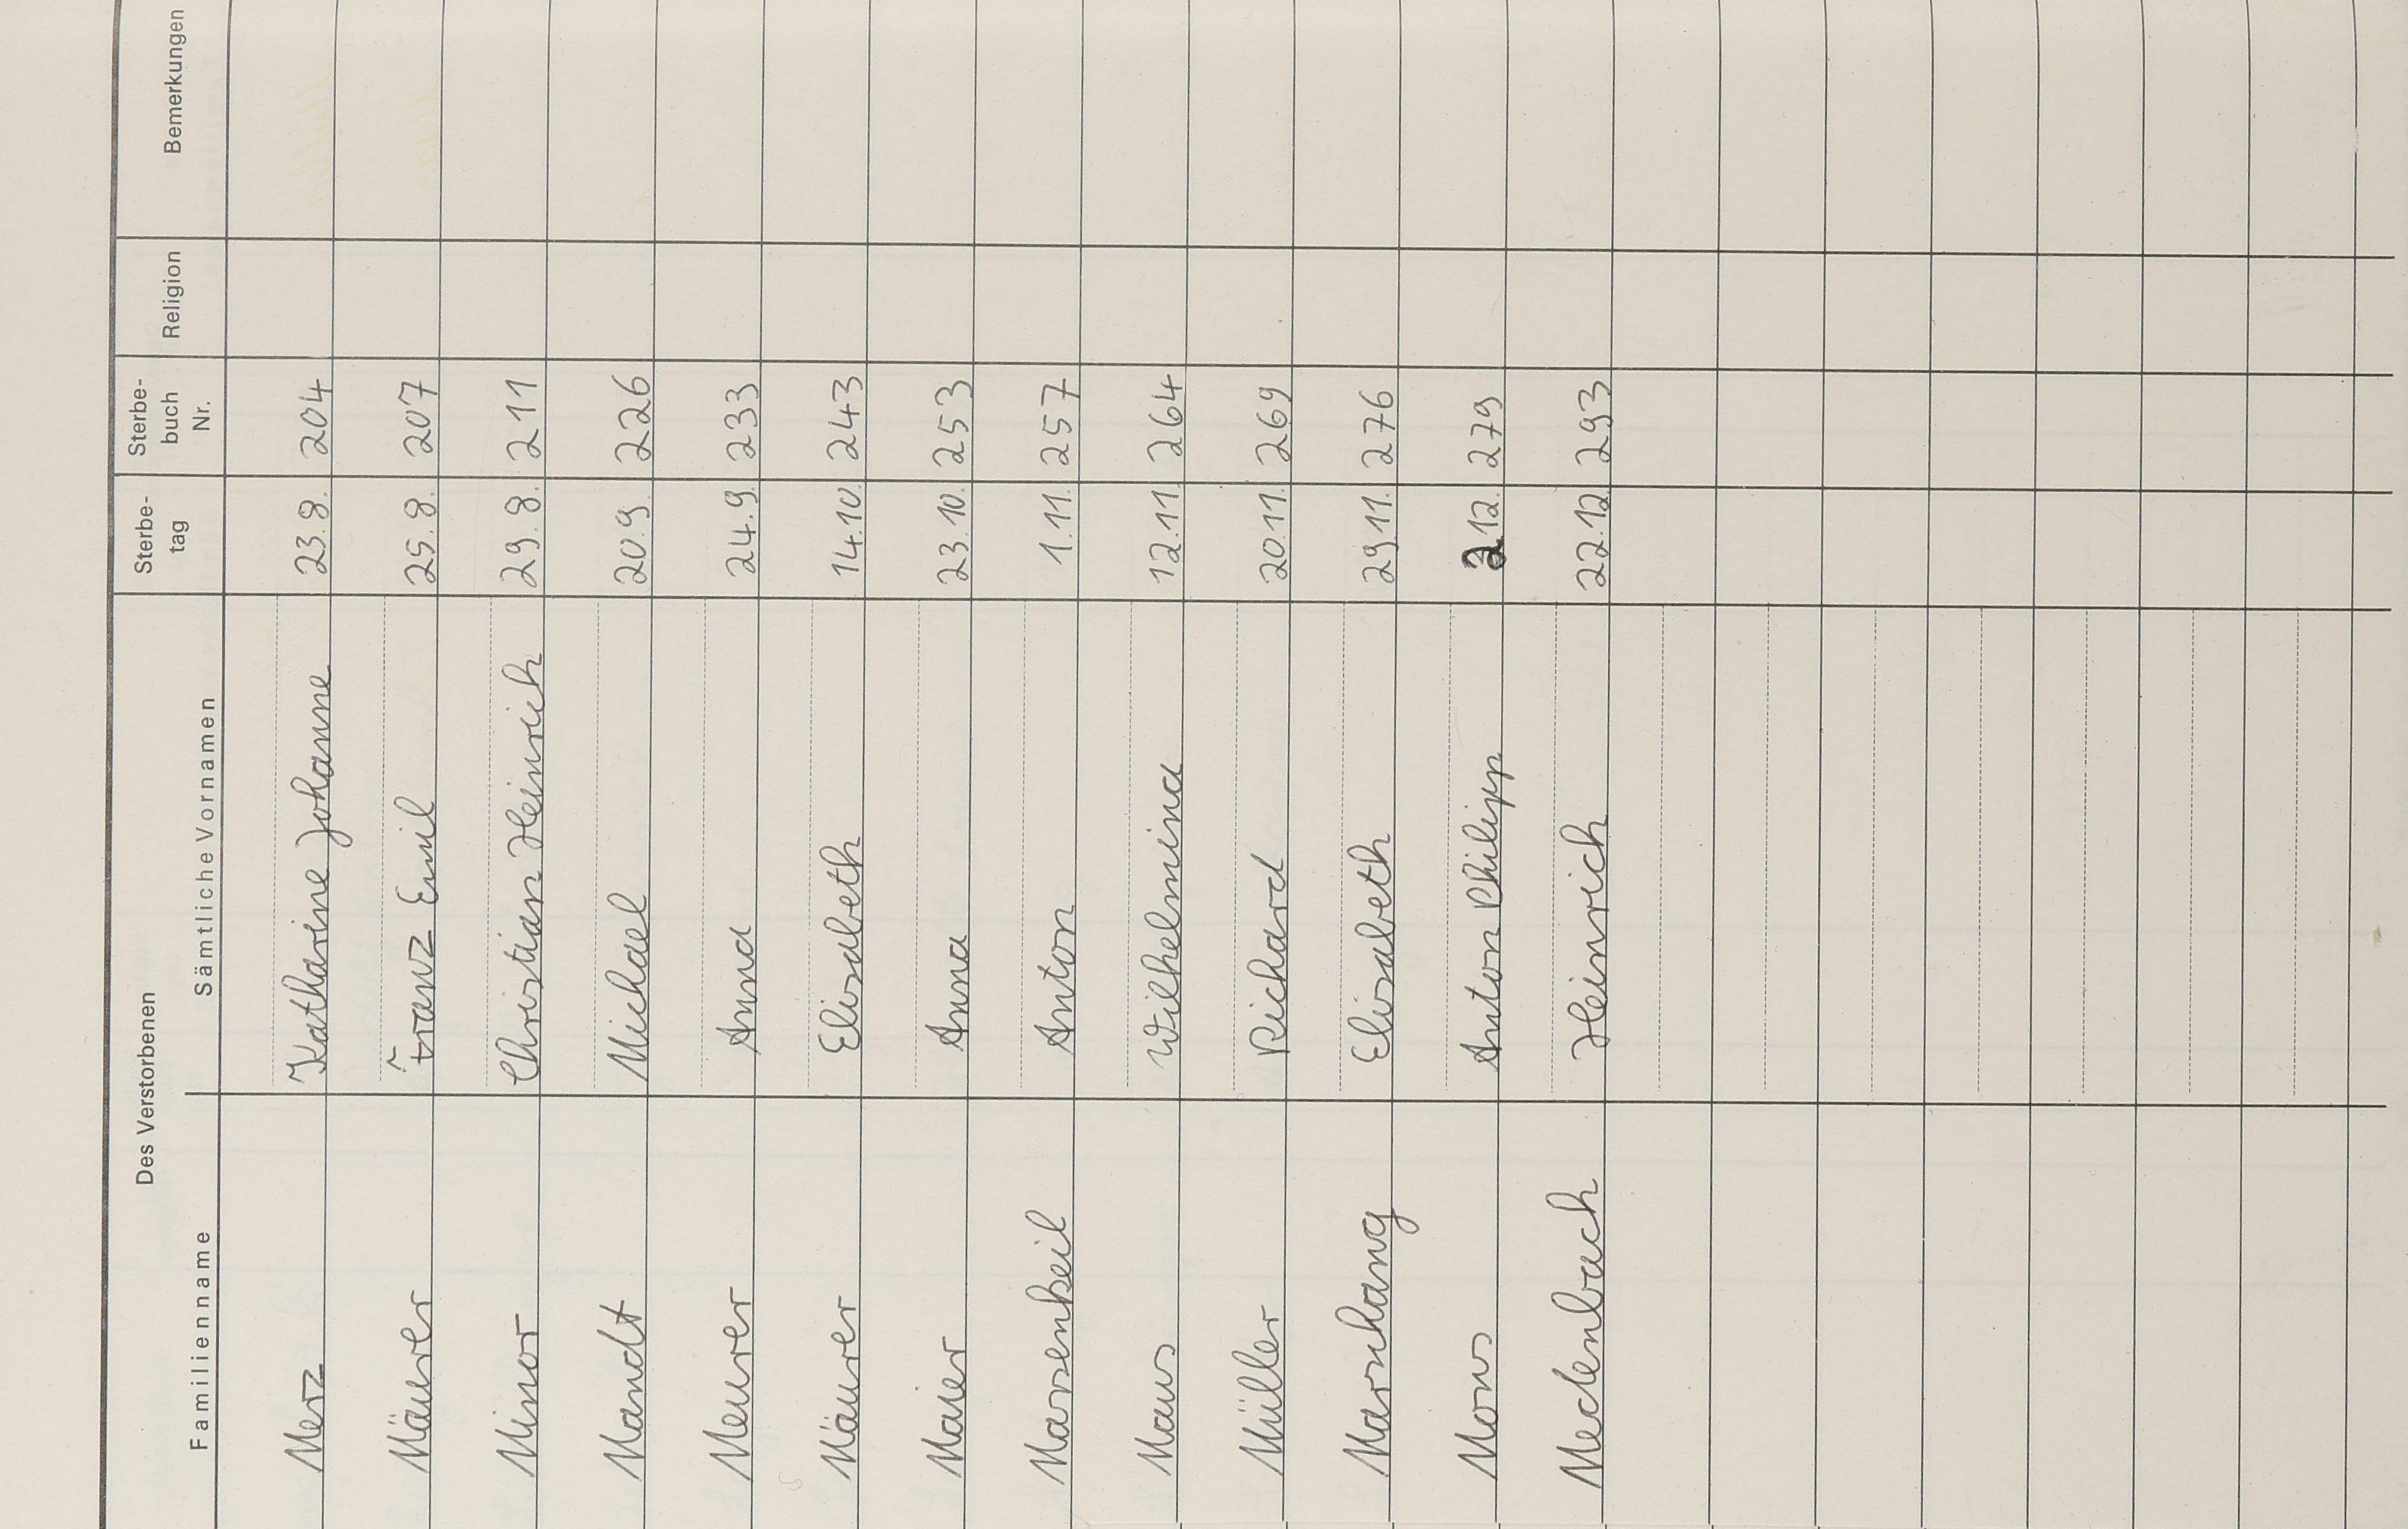 Des Verstorbenen Sterbe- tag Sterbe- buch Nr. Religion Bemerkungen
Familienname Sämtliche Vornamen
Merz Katharine Johanne 23.8. 204
Mäurer Franz Emil 25.8. 207
Minor Christian Heinrich 29.8. 211
Mandt Michael 20.9. 226
Meurer Anna 24.9. 233
Mäurer Elisabeth 14.10. 243
Maier Anna 23.10. 253
Massenkeil Anton 1.11. 257
Maus Wilhelmina 12.11. 264
Müller Richard 20.11. 269
Marschang Elisabeth 29.11. 276
Mons Anton Philipp 2.12. 279
Medenbach Heinrich 22.12. 293